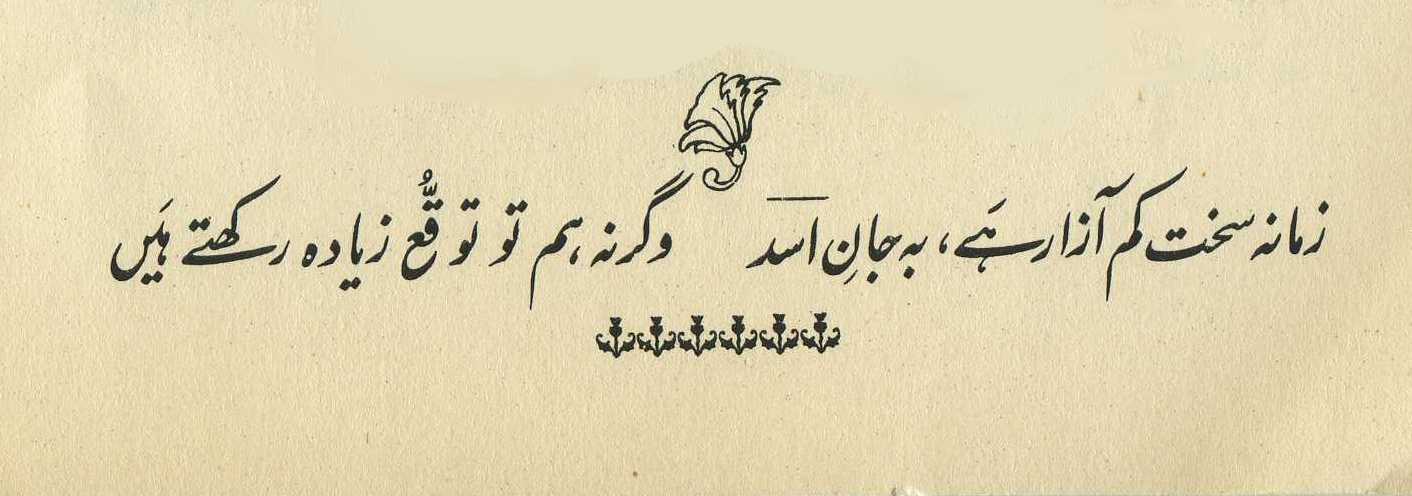 زمانہ سخت کم آزار ہَے، بہ جانِ اسدؔ وگرنہ ہم تو توقُّع زیادہ رکھتے ہَیں